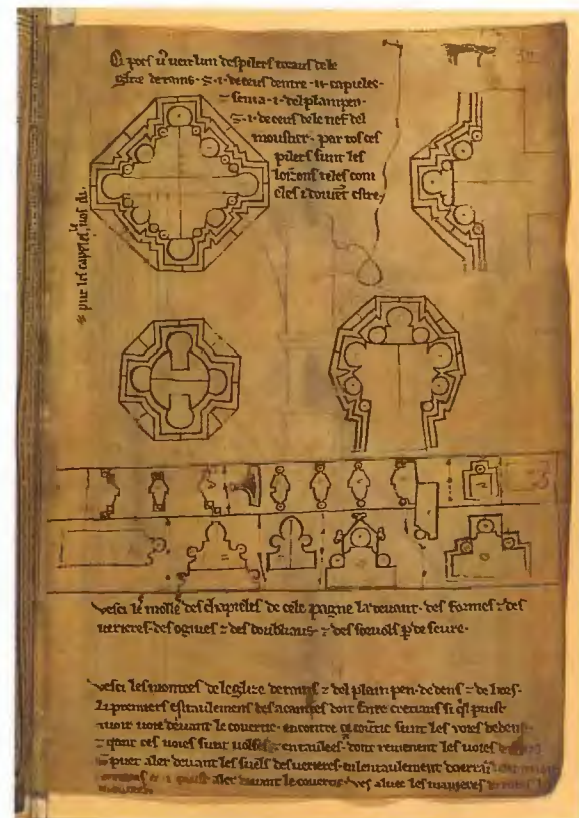 Ci poes vͦ veir lun des pilers toraus de le
glize de rains · ⁊ · i · de ceus dentre · ii · capieles ·
⁊ sen i a · i · del plain pen ·
⁊ · i · de ceus de le nef del
moustier · par tos ces
pilers sunt les
loizons teles com
eles i doivēt estre ·
Vesci les molles des chapieles de cele pagne la devant · des formes ⁊ des
verieres · des ogives ⁊ des doubliaus · ⁊ des sorvols p̄ de seure ·
Vesci les montees de le glize de rains ⁊ del plain pen · dedens ⁊ dehors ·
li premiers estaulemens des acaintes doit faire cretiaus si q'l puist
avoir voie devant le covertic · encontre ce covertic sunt les voies dedens ·
⁊ quant ces voies sunt volses ⁊ entaulees · dont revienent les voies
puet aler devant les suels des verieres · en lentaulement daerrain
puist aler devant le covertic · ves aluec les manieres de totes